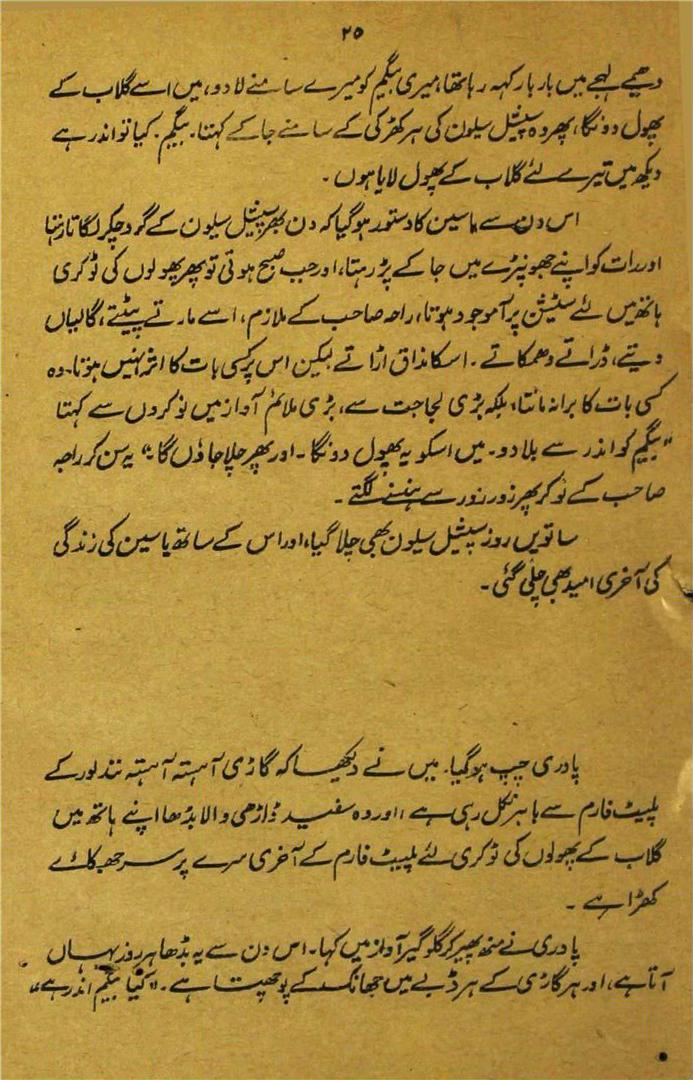 ۲۵
دھیمے لہجے میں بار بار کہہ رہا تھا، میری بیگم کو میرے سامنے لا دو، میں اسے گلاب کے
پھول دونگا، پھر وہ سپیشل سیلون کی ہر کھڑکی کے سامنے جا کے کہتا۔ بیگم۔ کیا تو اندر ہے
دیکھ میں تیرے لئے گلاب کے پھول لایا ہوں ۔
اس دن سے یاسین کا دستور ہو گیا کہ دن بھر سپیشل سیلون کے گرد چکر لگاتا رہتا
اور رات کو اپنے جھونپڑے میں جا کے پڑ رہتا، اور جب صبح ہوتی تو پھر پھولوں کی ٹوکری
ہاتھ میں لئے سٹیشن پر آموجود ہوتا، راجہ صاحب کے ملازم، اسے مارتے پیٹتے، گالیاں
دیتے، ڈراتے دھمکاتے ۔ اسکا مذاق اڑاتے لیکن اس پر کسی بات کا اثر نہیں ہوتا۔ وہ
کسی بات کا برا نہ مانتا، بلکہ بڑی لجاجت سے، بڑی ملائم آواز میں نوکروں سے کہتا
"بیگم کو اندر سے بلا دو۔ میں اسکو یہ پھول دونگا ۔ اور پھر چلا جاؤں گا۔" یہ سن کر راجہ
صاحب کے نوکر پھر زور زور سے ہنسنے لگتے ۔
ساتویں روز سپیشل سیلون بھی چلا گیا، اور اس کے ساتھ یاسین کی زندگی
کی آخری امید بھی چلی گئی ۔
پادری چپ ہو گیا۔ میں نے دیکھا کہ گاڑی آہستہ آہستہ تندلور کے
پلیٹ فارم سے باہر نکل رہی ہے، اور وہ سفید ڈاڑھی والا بڈھا اپنے ہاتھ میں
گلاب کے پھولوں کی ٹوکری لئے پلیٹ فارم کے آخری سرے پر سر جھکائے
کھڑا ہے ۔
پادری نے منھ پھیر کر گلوگیر آواز میں کہا۔ اس دن سے یہ بڈھا ہر روز یہاں
آتا ہے، اور ہر گاڑی کے ہر ڈبے میں جھانک کے پوچھتا ہے۔ "کیا بیگم اندر ہے"